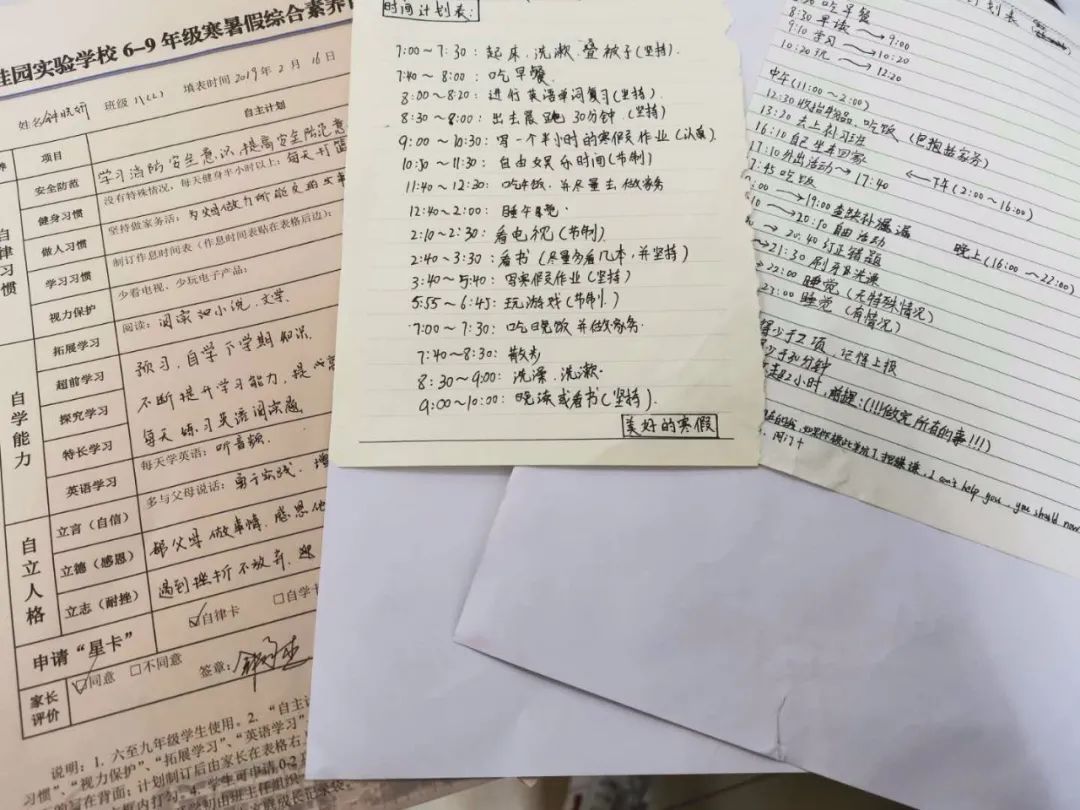 桂园实验学校6-9年级寒暑假综合素养
姓名 班级 八(2) 填表时间2019年2月16日
项目
自主计划
自律习惯
安全防范
学习消防安全意识,提高安全防范意
健身习惯
没有特殊情况,每天健身半小时以上:每天打篮
做人习惯
坚持做家务活:
学习习惯
制订作息时间表(作息时间表贴在表格后边):
视力保护
少看电视、少玩电子产品:
自学能力
拓展学习
阅读:阅读 小说、文学.
超前学习
预习,自学下学期知识.
探究学习
不断提升学习能力,提
特长学习
每天练习英语阅读题
英语学习
每天学英语:听音频.
自立人格
立言(自信)
多与父母说话:勇于实践、增
立德(感恩)
帮父母做事情,感恩他
立志(耐挫)
遇到挫折不放弃,
申请“星卡”
☑自律卡 □自学卡
家长评价
☑同意 □不同意 签章:
说明:1. 六至九年级学生使用。2. “自主计
习惯”、“视力保护”、“拓展学习”、“英语学习”
的写在背面;计划制订后由家长在表格右
框内打勾。4. 学生可申请0-2
时间计划表:
7:00~7:30:起床、洗漱、叠被子(坚持).
7:40~8:00:吃早餐.
8:00~8:20:进行英语单词复习(坚持)
8:30~8:00:出去晨跑30分钟.(坚持)
9:00~10:30:写一个半小时的寒假作业(认真)
10:30~11:30:自由娱乐时间(节制)
11:40~12:30:吃午饭,并尽量去做家务
12:40~2:00:睡午觉.
2:10~2:30:看电视(节制)
2:40~3:30:看书(尽量多看几本,并坚持)
3:40~5:40:写寒假作业(坚持)
5:55~6:45:玩游戏(节制.)
7:00~7:30:吃晚饭并做家务.
7:40~8:30:散步
8:30~9:00:洗澡、洗漱.
9:00~10:00:晚读或看书(坚持).
美好的寒假
计划表
吃早餐
8:30 早读→9:00
9:10 学习→10:20
10:20 玩→12:20
中午(11:00~2:00)
12:30 收拾物品、吃饭(包括做家务)
13:20 去上补习班
16:10 自己坐车回家
←下午(2:00~16:00)
17:10 外出活动→17:40
17:45 吃饭
→19:00 查缺补漏
→20:10 自由活动
晚上(16:00~22:00)
→20:40 订正错题
→21:30 刷牙及洗澡
22:00 睡觉(无特殊情况)
23:00 睡觉(有情况)
少于2项,记得上报
少于30分钟
超2小时,前提:(!!!做完所有的事!!!)
I can't help you, you should now